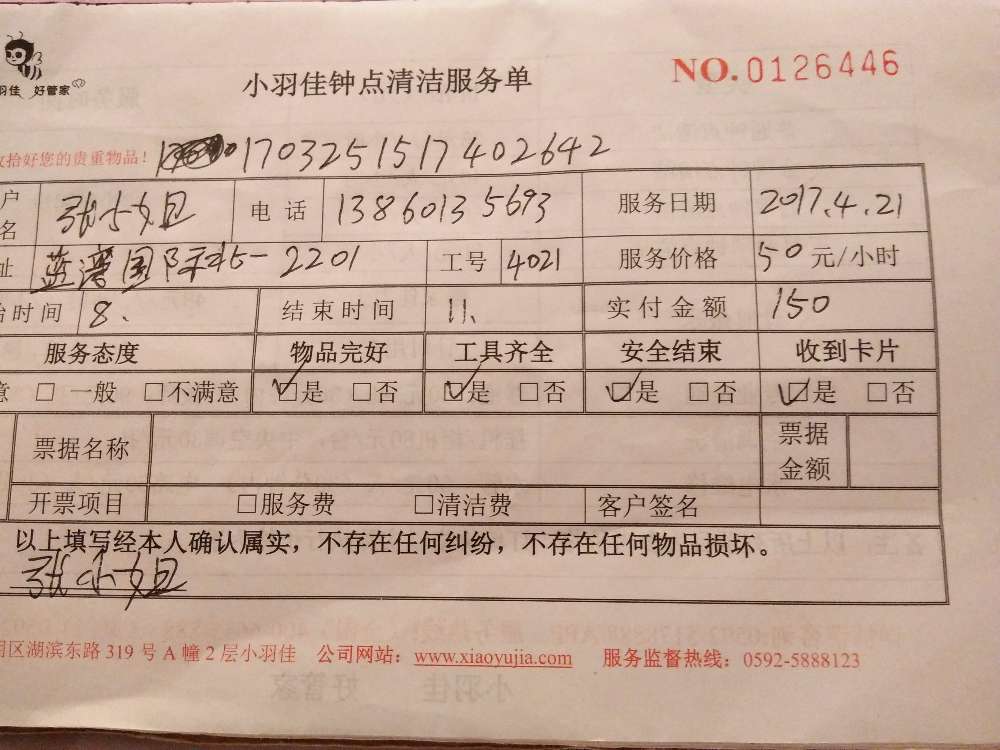 小羽佳钟点清洁服务单 NO.0126446
羽佳 好管家
收拾好您的贵重物品! 170325151740 2642
户名 张小姐 电话 13860135693 服务日期 2017.4.21
址 蓝湾国际北-2201 工号 4021 服务价格 50元/小时
始时间 8. 结束时间 11. 实付金额 150
服务态度 物品完好 工具齐全 安全结束 收到卡片
意 □ 一般 □不满意 □是 □否 □是 □否 □是 □否 □是 □否
票据名称 票据金额
开票项目 □服务费 □清洁费 客户签名
以上填写经本人确认属实，不存在任何纠纷，不存在任何物品损坏。
张小姐
明区湖滨东路 319 号 A 幢 2 层小羽佳 公司网站：www.xiaoyujia.com 服务监督热线：0592-5888123